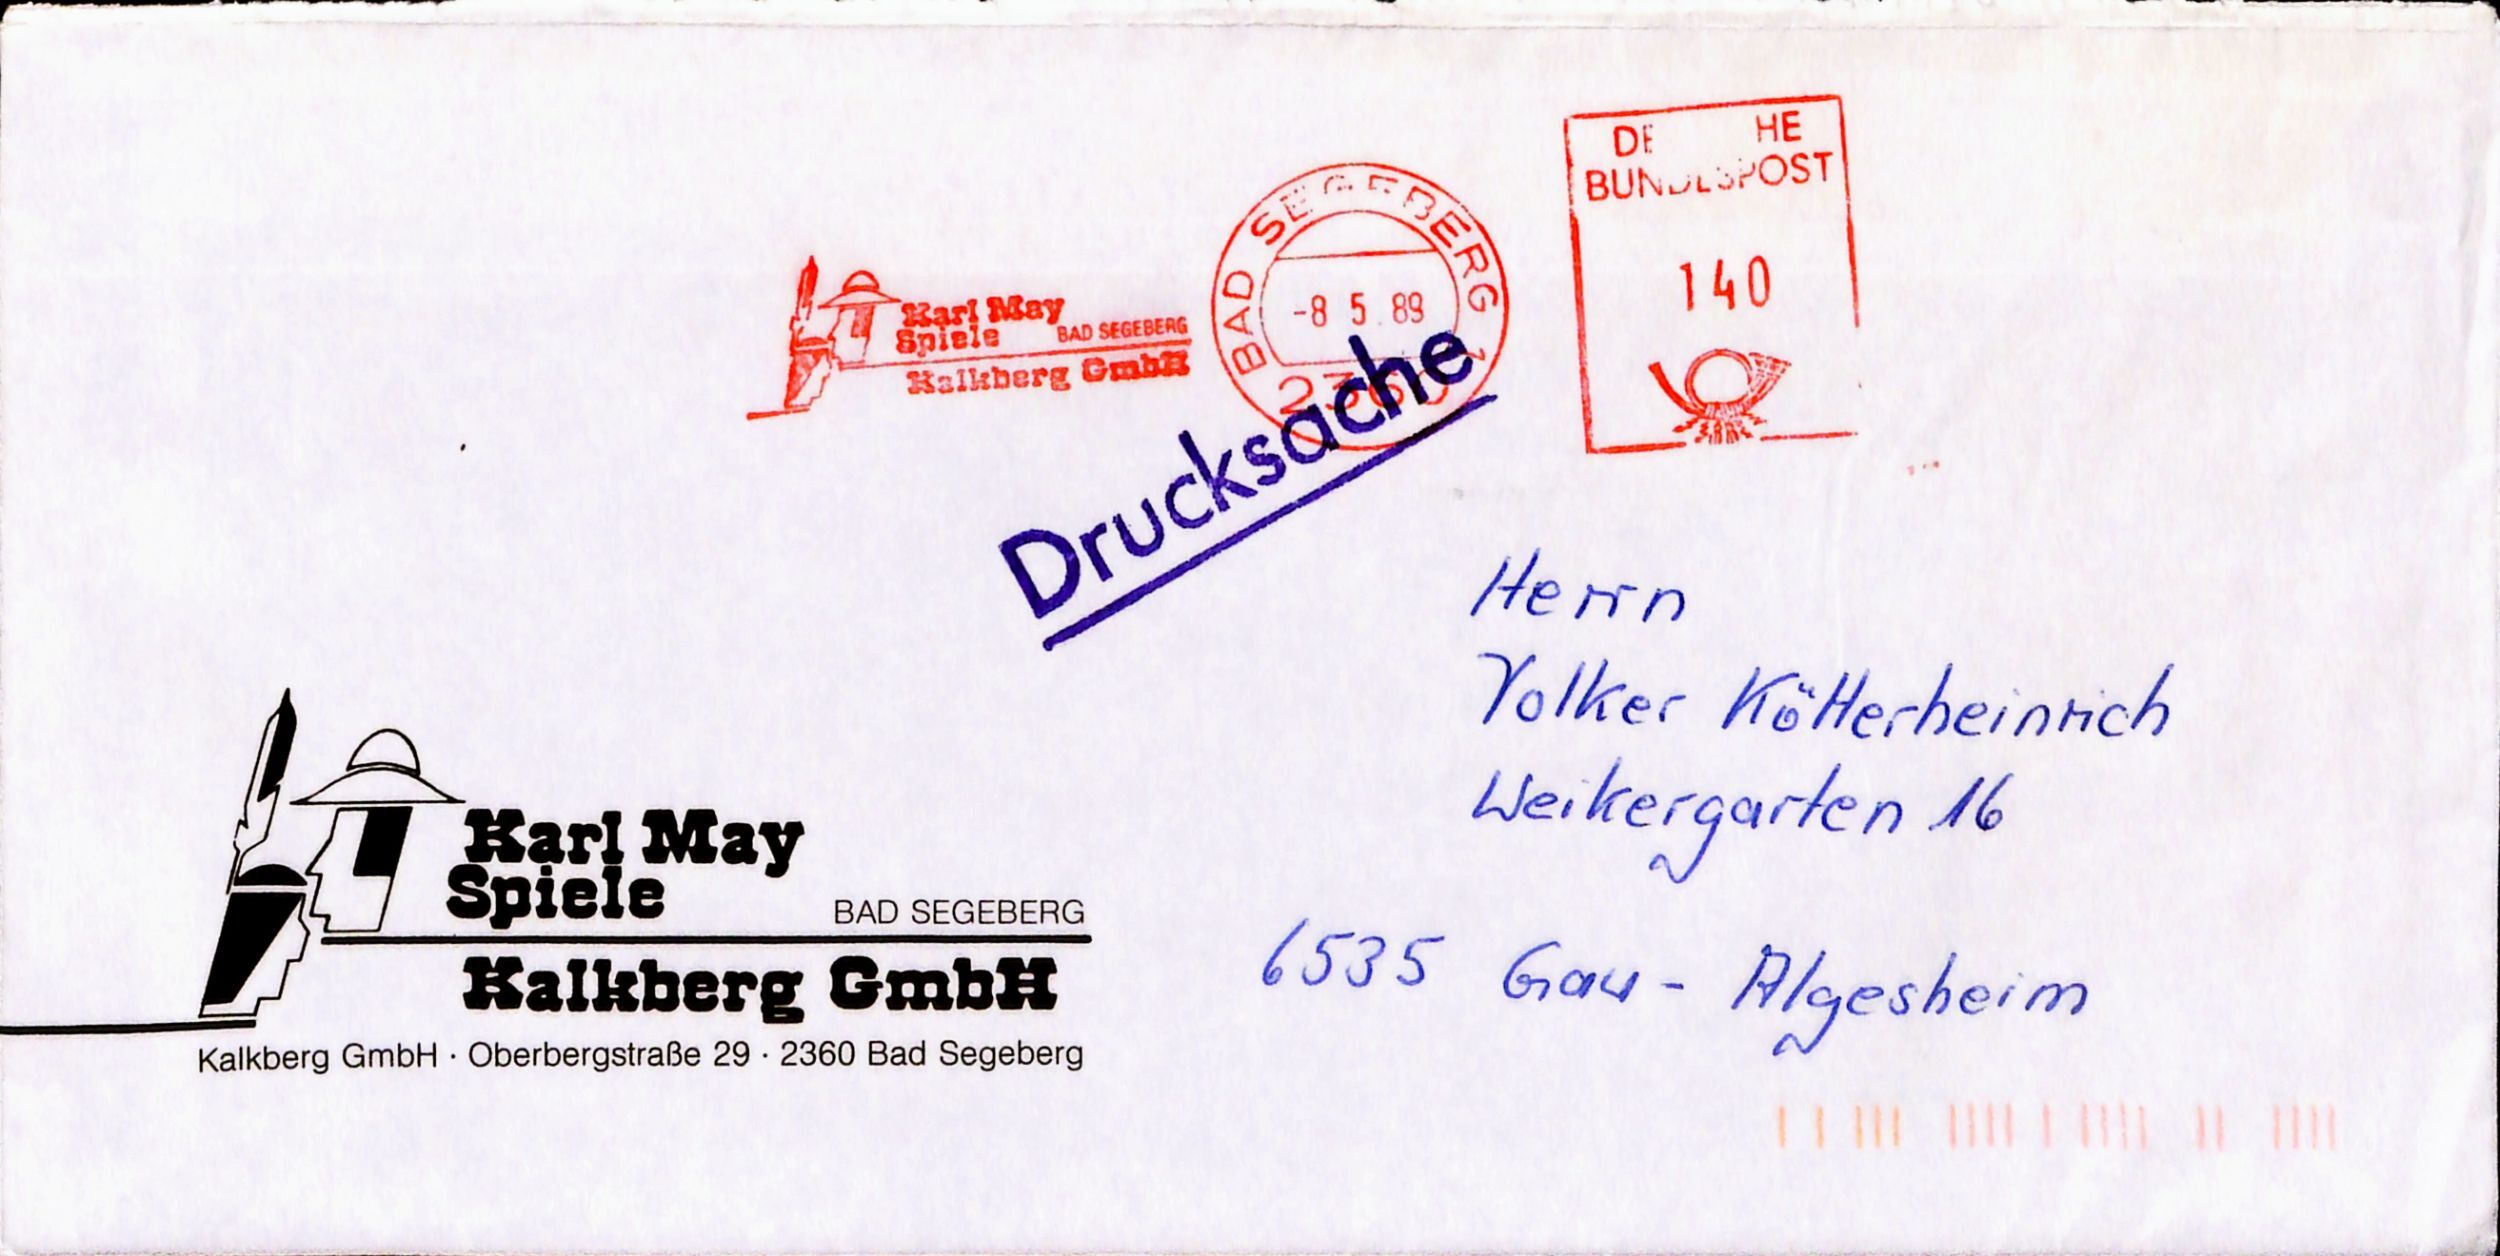 DE HE
BUNDESPOST
140
Karl May
Spiele BAD SEGEBERG
Kalkberg GmbH
BAD SEGEBERG 1
-8 5 89
2360
Drucksache
Herrn
Volker Kötterheinrich
Weikergarten 16
6535 Gau-Algesheim
Karl May
Spiele BAD SEGEBERG
Kalkberg GmbH
Kalkberg GmbH · Oberbergstraße 29 · 2360 Bad Segeberg